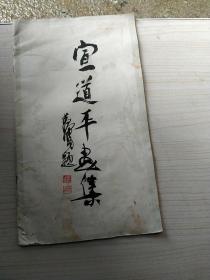 宣道平画集